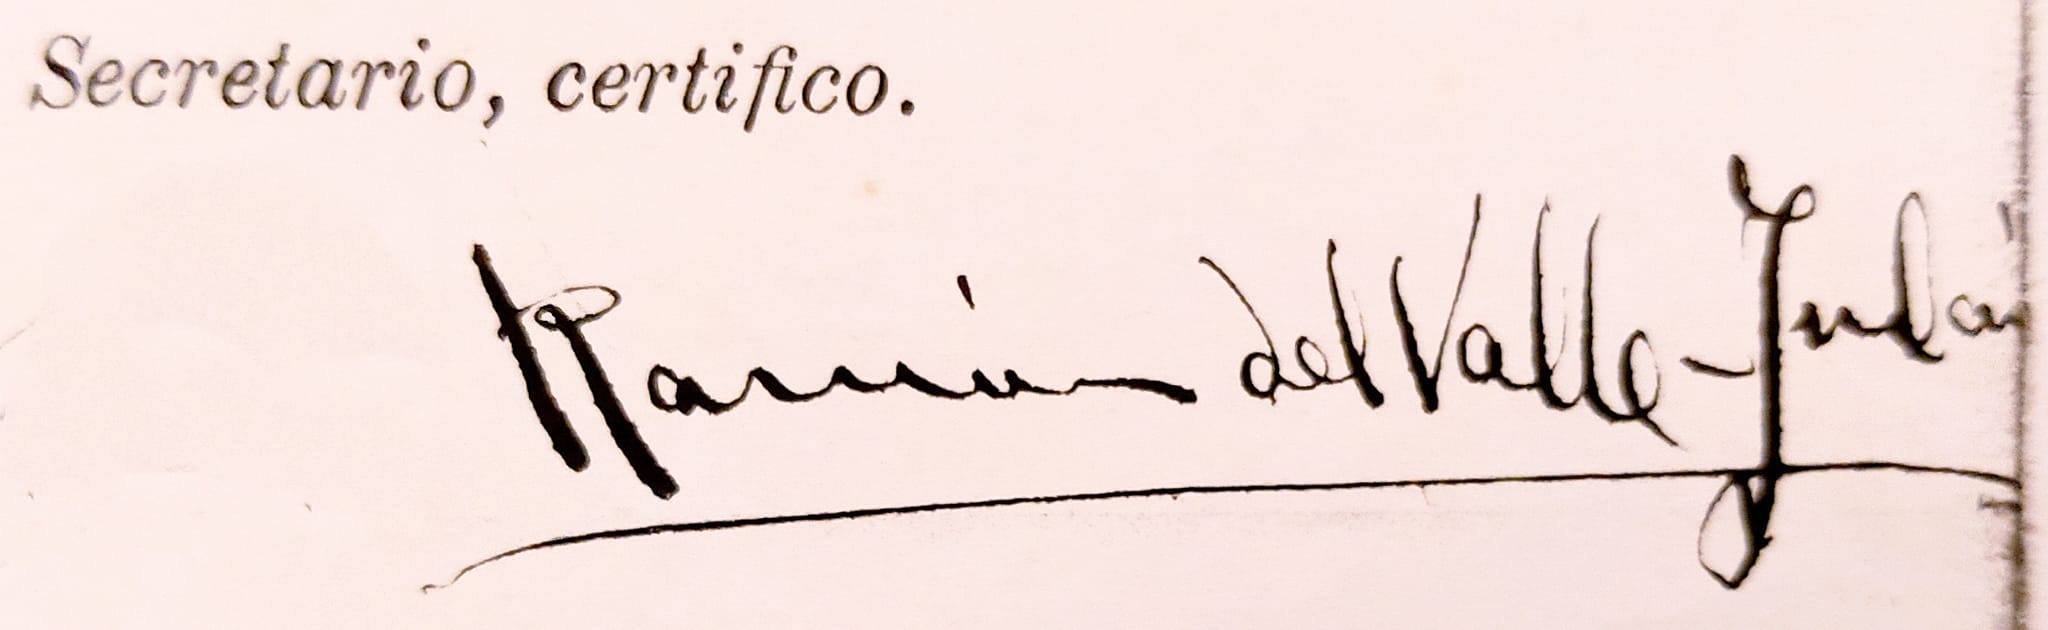 Secretario, certifico.
Ramón del Valle-Inclán